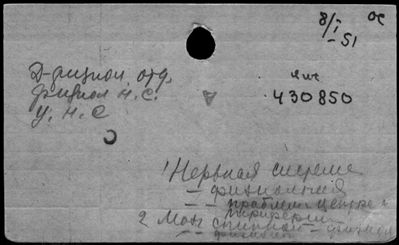 8/I ос
-51
Д-рицион. отд.
физиол н. с.
у. н. с
430850
1 Нервная система
- физиология
- - проблем центра и
периферии
2 Мозг спинной - физиол